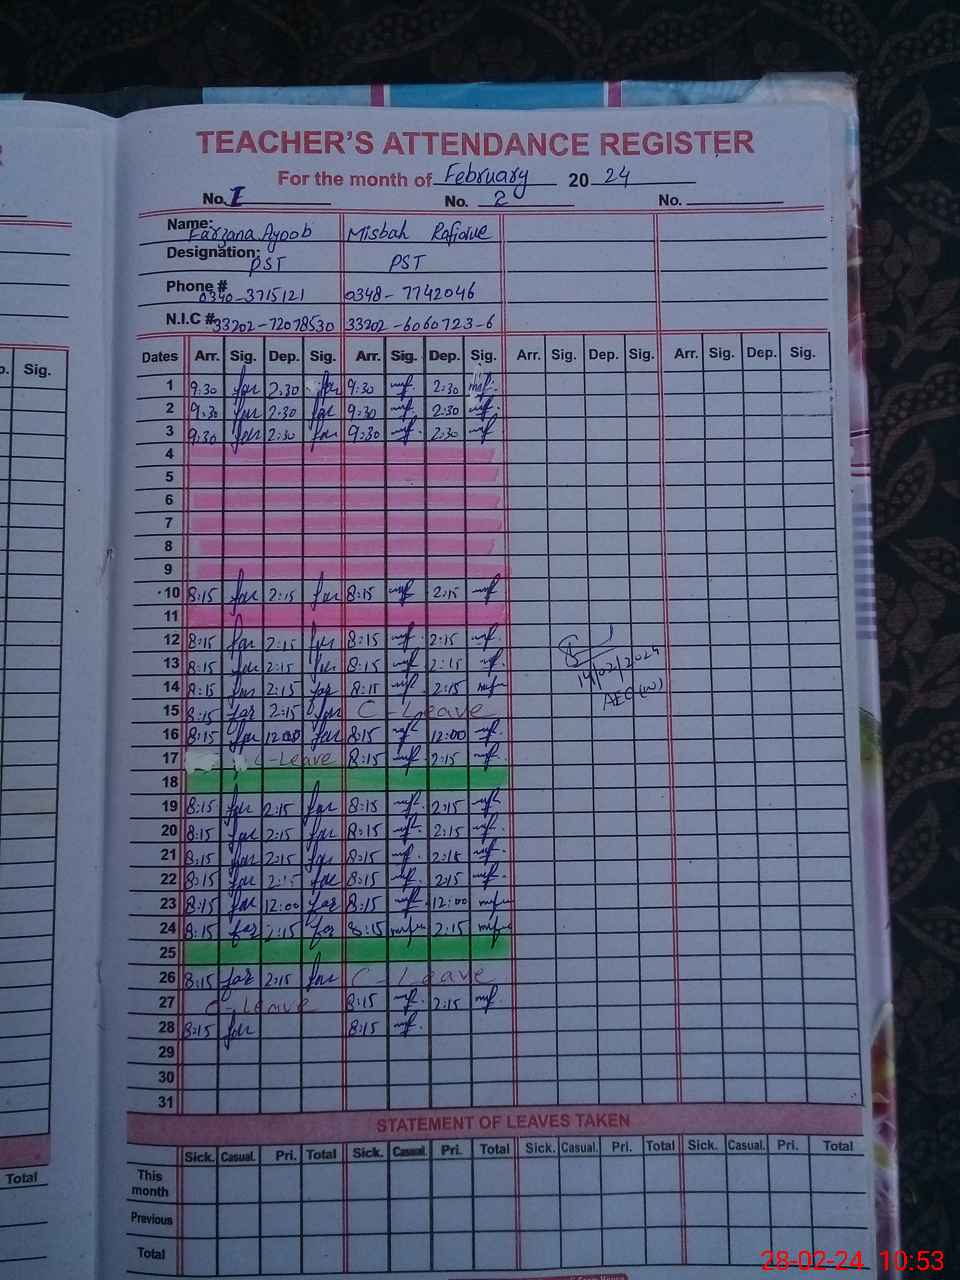 TEACHER'S ATTENDANCE REGISTER
For the month of February 2024
No. I No. 2 No.
Name: Farzana Ayoob Misbah Rafique
Designation: PST PST
Phone # 0340-3715121 0348-7742046
N.I.C # 33202-72078530 33202-6060723-6
p. Sig. Dates Arr. Sig. Dep. Sig. Arr. Sig. Dep. Sig. Arr. Sig. Dep. Sig. Arr. Sig. Dep. Sig.
1 9:30 far 2:30 far 9:30 mf 2:30 mf
2 9:30 far 2:30 far 9:30 mf 2:30 mf
3 9:30 far 2:30 far 9:30 mf 2:30 mf
4
5
6
7
8
9
10 8:15 far 2:15 far 8:15 mf 2:15 mf
11
12 8:15 far 2:15 far 8:15 mf 2:15 mf
13 8:15 far 2:15 far 8:15 mf 2:15 mf
14/02/2024
14 8:15 far 2:15 far 8:15 mf 2:15 mf
AEO (W)
15 8:15 far 2:15 far C-Leave
16 8:15 far 12:00 far 8:15 mf 12:00 mf
17 C-Leave 8:15 mf 2:15 mf
18
19 8:15 far 2:15 far 8:15 mf 2:15 mf
20 8:15 far 2:15 far 8:15 mf 2:15 mf
21 8:15 far 2:15 far 8:15 mf 2:15 mf
22 8:15 far 2:15 far 8:15 mf 2:15 mf
23 8:15 far 12:00 far 8:15 mf 12:00 mf
24 8:15 far 2:15 far 8:15 mf 2:15 mf
25
26 8:15 far 2:15 far C-Leave
27 C-Leave 8:15 mf 2:15 mf
28 8:15 far 8:15 mf
29
30
31
STATEMENT OF LEAVES TAKEN
Total Sick. Casual. Pri. Total Sick. Casual. Pri. Total Sick. Casual. Pri. Total Sick. Casual. Pri. Total
This month
Previous
Total
28-02-24 10:53